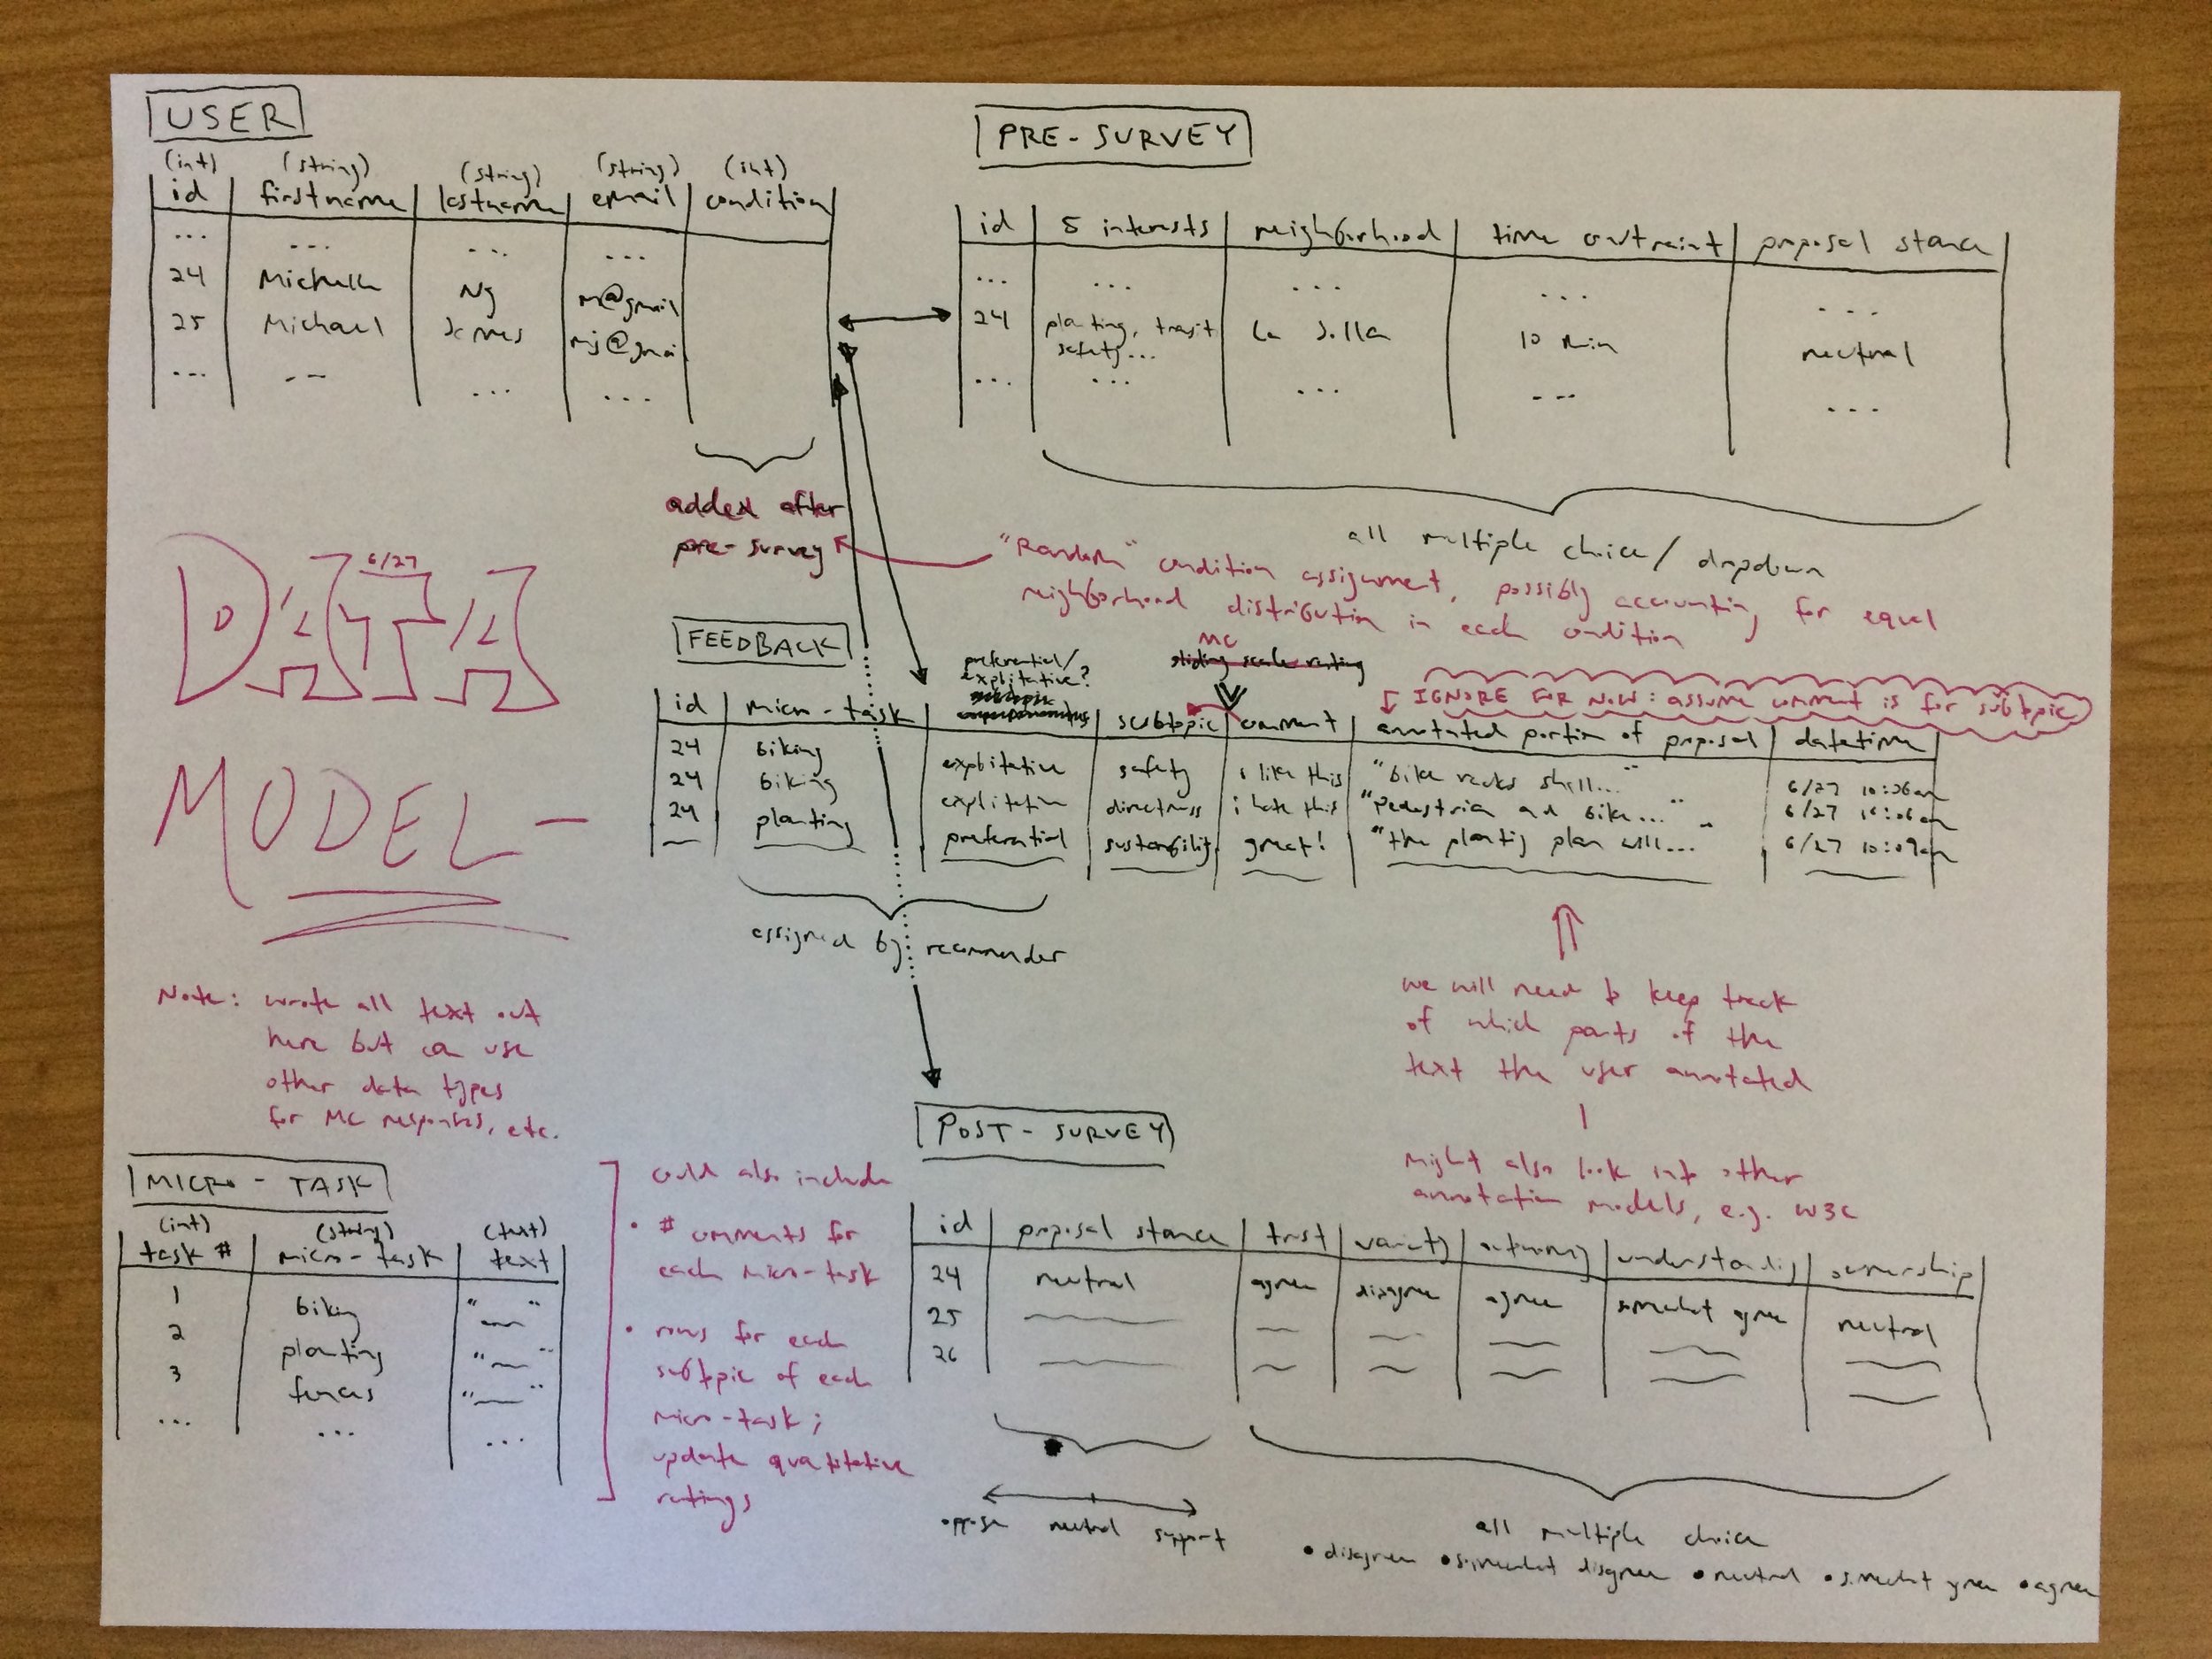 USER
(int) (string) (string) (string) (int)
id firstname lastname email condition
... ... ... ...
24 Michelle Ng m@gmail
25 Michael James mj@gmai
... -- ... ...
added after
pre-survey
PRE-SURVEY
id 5 interests neighborhood time constraint proposal stance
... ... ... ... ...
24 planting, transit La Silla 10 min neutral
safety...
... ... ... --- ...
all multiple choice/dropdown
"Random" condition assignment, possibly accounting for equal
neighborhood distribution in each condition
6/27
DATA
MODEL
FEEDBACK
preferential/
explitative?
MC
sliding scale rating
IGNORE FOR NOW: assume comment is for subtopic
id micro-task subtopic comment annotated portion of proposal datetime
24 biking explitative safety i like this "bike racks shall..." 6/27 10:06am
24 biking explitative directness i hate this "Pedestrian and bike..." 6/27 10:06am
24 planting preferential sustanbility great! "the planting plan will... 6/27 10:09am
assigned by recommender
we will need to keep track
of which parts of the
text the user annotated
might also look into other
annotation models, e.g. W3C
Note: wrote all text out
here but can use
other data types
for MC responses, etc.
MICRO-TASK
(int) (string) (text)
task # micro-task text
1 biking "—"
2 planting "—"
3 fences "—"
... ... ...
could also include
• # comments for
each micro-task
• rows for each
subtopic of each
micro-task;
update quantitative
ratings
POST-SURVEY
id proposal stance trust variety autonomy understanding ownership
24 neutral agree disagree agree somewhat agree neutral
25
26
oppose neutral support
all multiple choice
• disagree • somewhat disagree • neutral • somewhat agree • agree